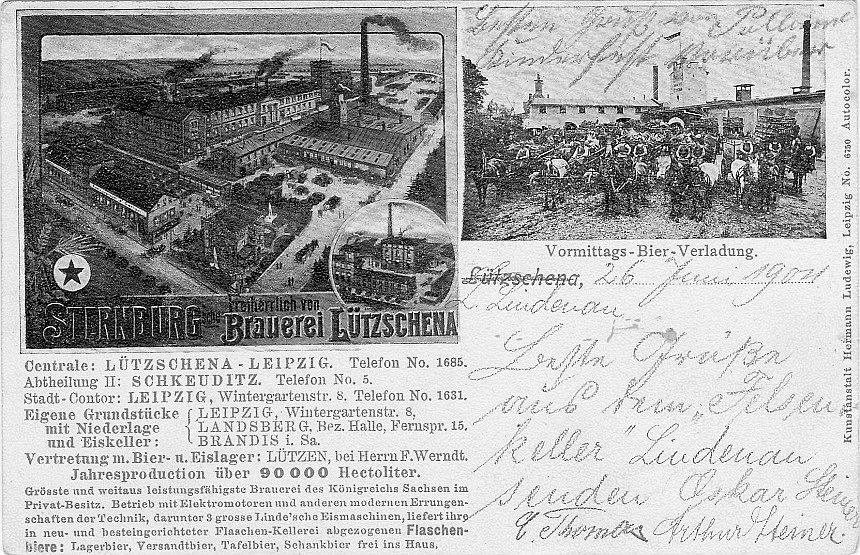 Besten Gruß vom
Kinderfest
STERNBURG'sche
Freiherrlich von
Brauerei LÜTZSCHENA
Vormittags-Bier-Verladung.
Lützschena, 26 Juni 1901
L. Lindenau.
Centrale: LÜTZSCHENA-LEIPZIG. Telefon No. 1685.
Abtheilung II: SCHKEUDITZ. Telefon No. 5.
Stadt-Contor: LEIPZIG, Wintergartenstr. 8. Telefon No. 1631.
Eigene Grundstücke mit Niederlage und Eiskeller:
LEIPZIG, Wintergartenstr. 8,
LANDSBERG, Bez. Halle, Fernspr. 15.
BRANDIS i. Sa.
Vertretung m. Bier- u. Eislager: LÜTZEN, bei Herrn F. Werndt.
Jahresproduction über 90000 Hectoliter.
Grösste und weitaus leistungsfähigste Brauerei des Königreichs Sachsen im
Privat-Besitz. Betrieb mit Elektromotoren und anderen modernen Errungen-
schaften der Technik, darunter 3 grosse Linde'sche Eismaschinen, liefert ihre
in neu- und besteingerichteter Flaschen-Kellerei abgezogenen Flaschen-
biere: Lagerbier, Versandtbier, Tafelbier, Schankbier frei ins Haus,
Beste Grüße
aus dem "Felsen
keller" Lindenau
senden Oskar Steiner
Thomas Arthur Steiner.
Kunstanstalt Hermann Ludewig, Leipzig No. 6750 Autocolor.